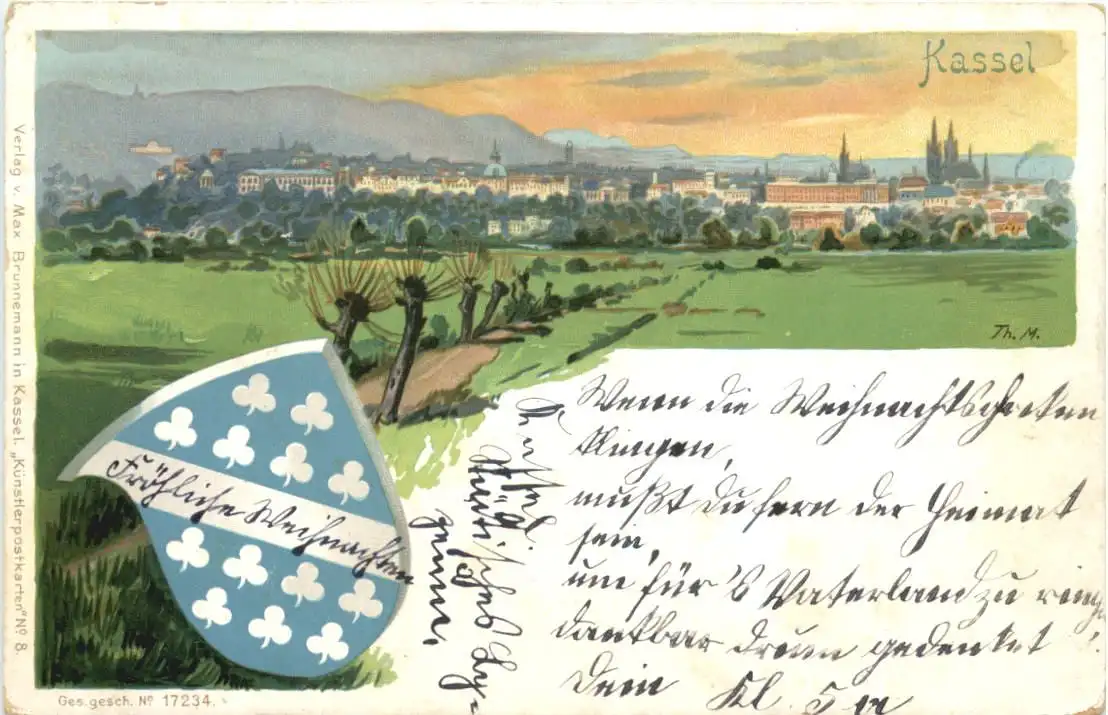 Kassel
Th. M.
Verlag v. Max Brunnemann in Kassel. „Künstlerpostkarten" No 8.
Fröhliche Weihnachten
Wenn die Weihnachtsglocken
klingen,
mußt du fern der Heimat
sein,
um für's Vaterland zu
dankbar drum gedenket
Dein Kl.
Ges. gesch. No 17234.